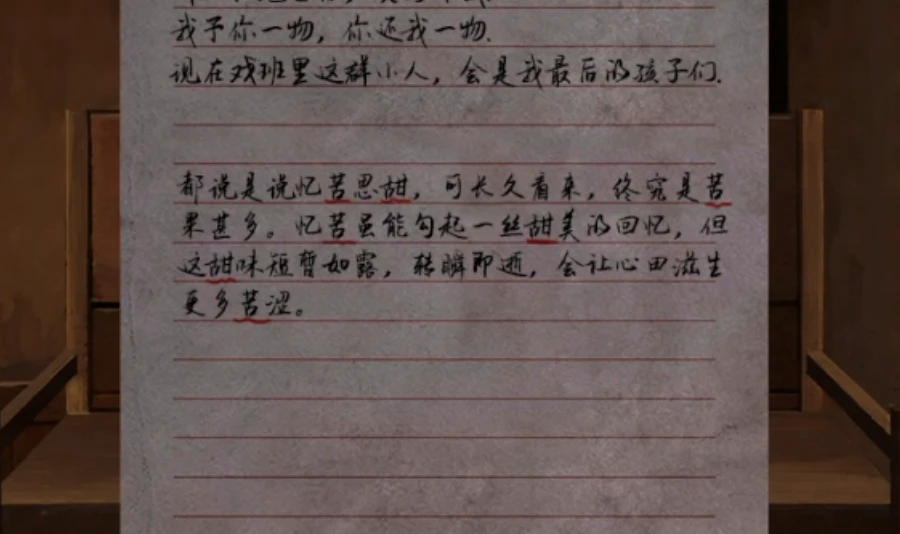 我予你一物，你还我一物.
现在戏班里这群小人，会是我最后的孩子们.
都说是说忆苦思甜，可长久看来，终究是苦
果甚多。忆苦虽能勾起一丝甜美的回忆，但
这甜味短暂如露，转瞬即逝，会让心田滋生
更多苦涩。